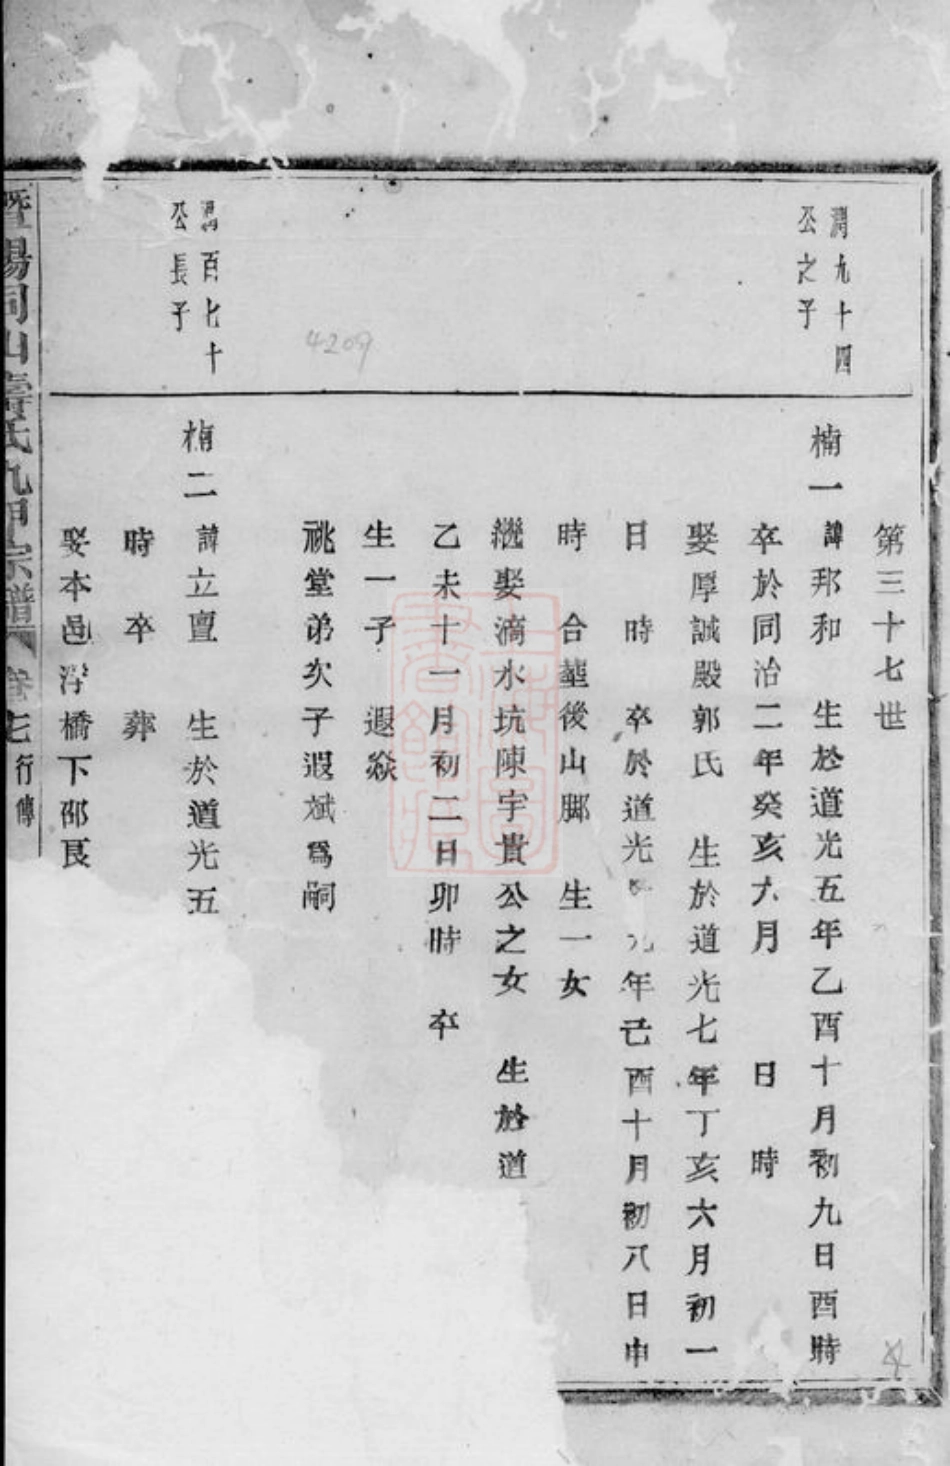 第三十七世
潤九十四
公之子
楠一
諱邦和 生於道光五年乙酉十月初九日酉時
卒於同治二年癸亥六月 日 時
娶厚誠殿郭氏 生於道光七年丁亥六月初一
日 時 卒於道光 九年己酉十月初八日申
時 合塟後山脚 生一女
繼娶滴水坑陳宇貴公之女 生於道
乙未十一月初二日卯時 卒
生一子 遐焱
祧堂弟次子遐斌爲嗣
百七十
公長子
楠二
諱立亶 生於道光五
時 卒 葬
娶本邑浮橋下邵長
暨陽同山壽氏九甲宗譜 卷七 行傳
4209